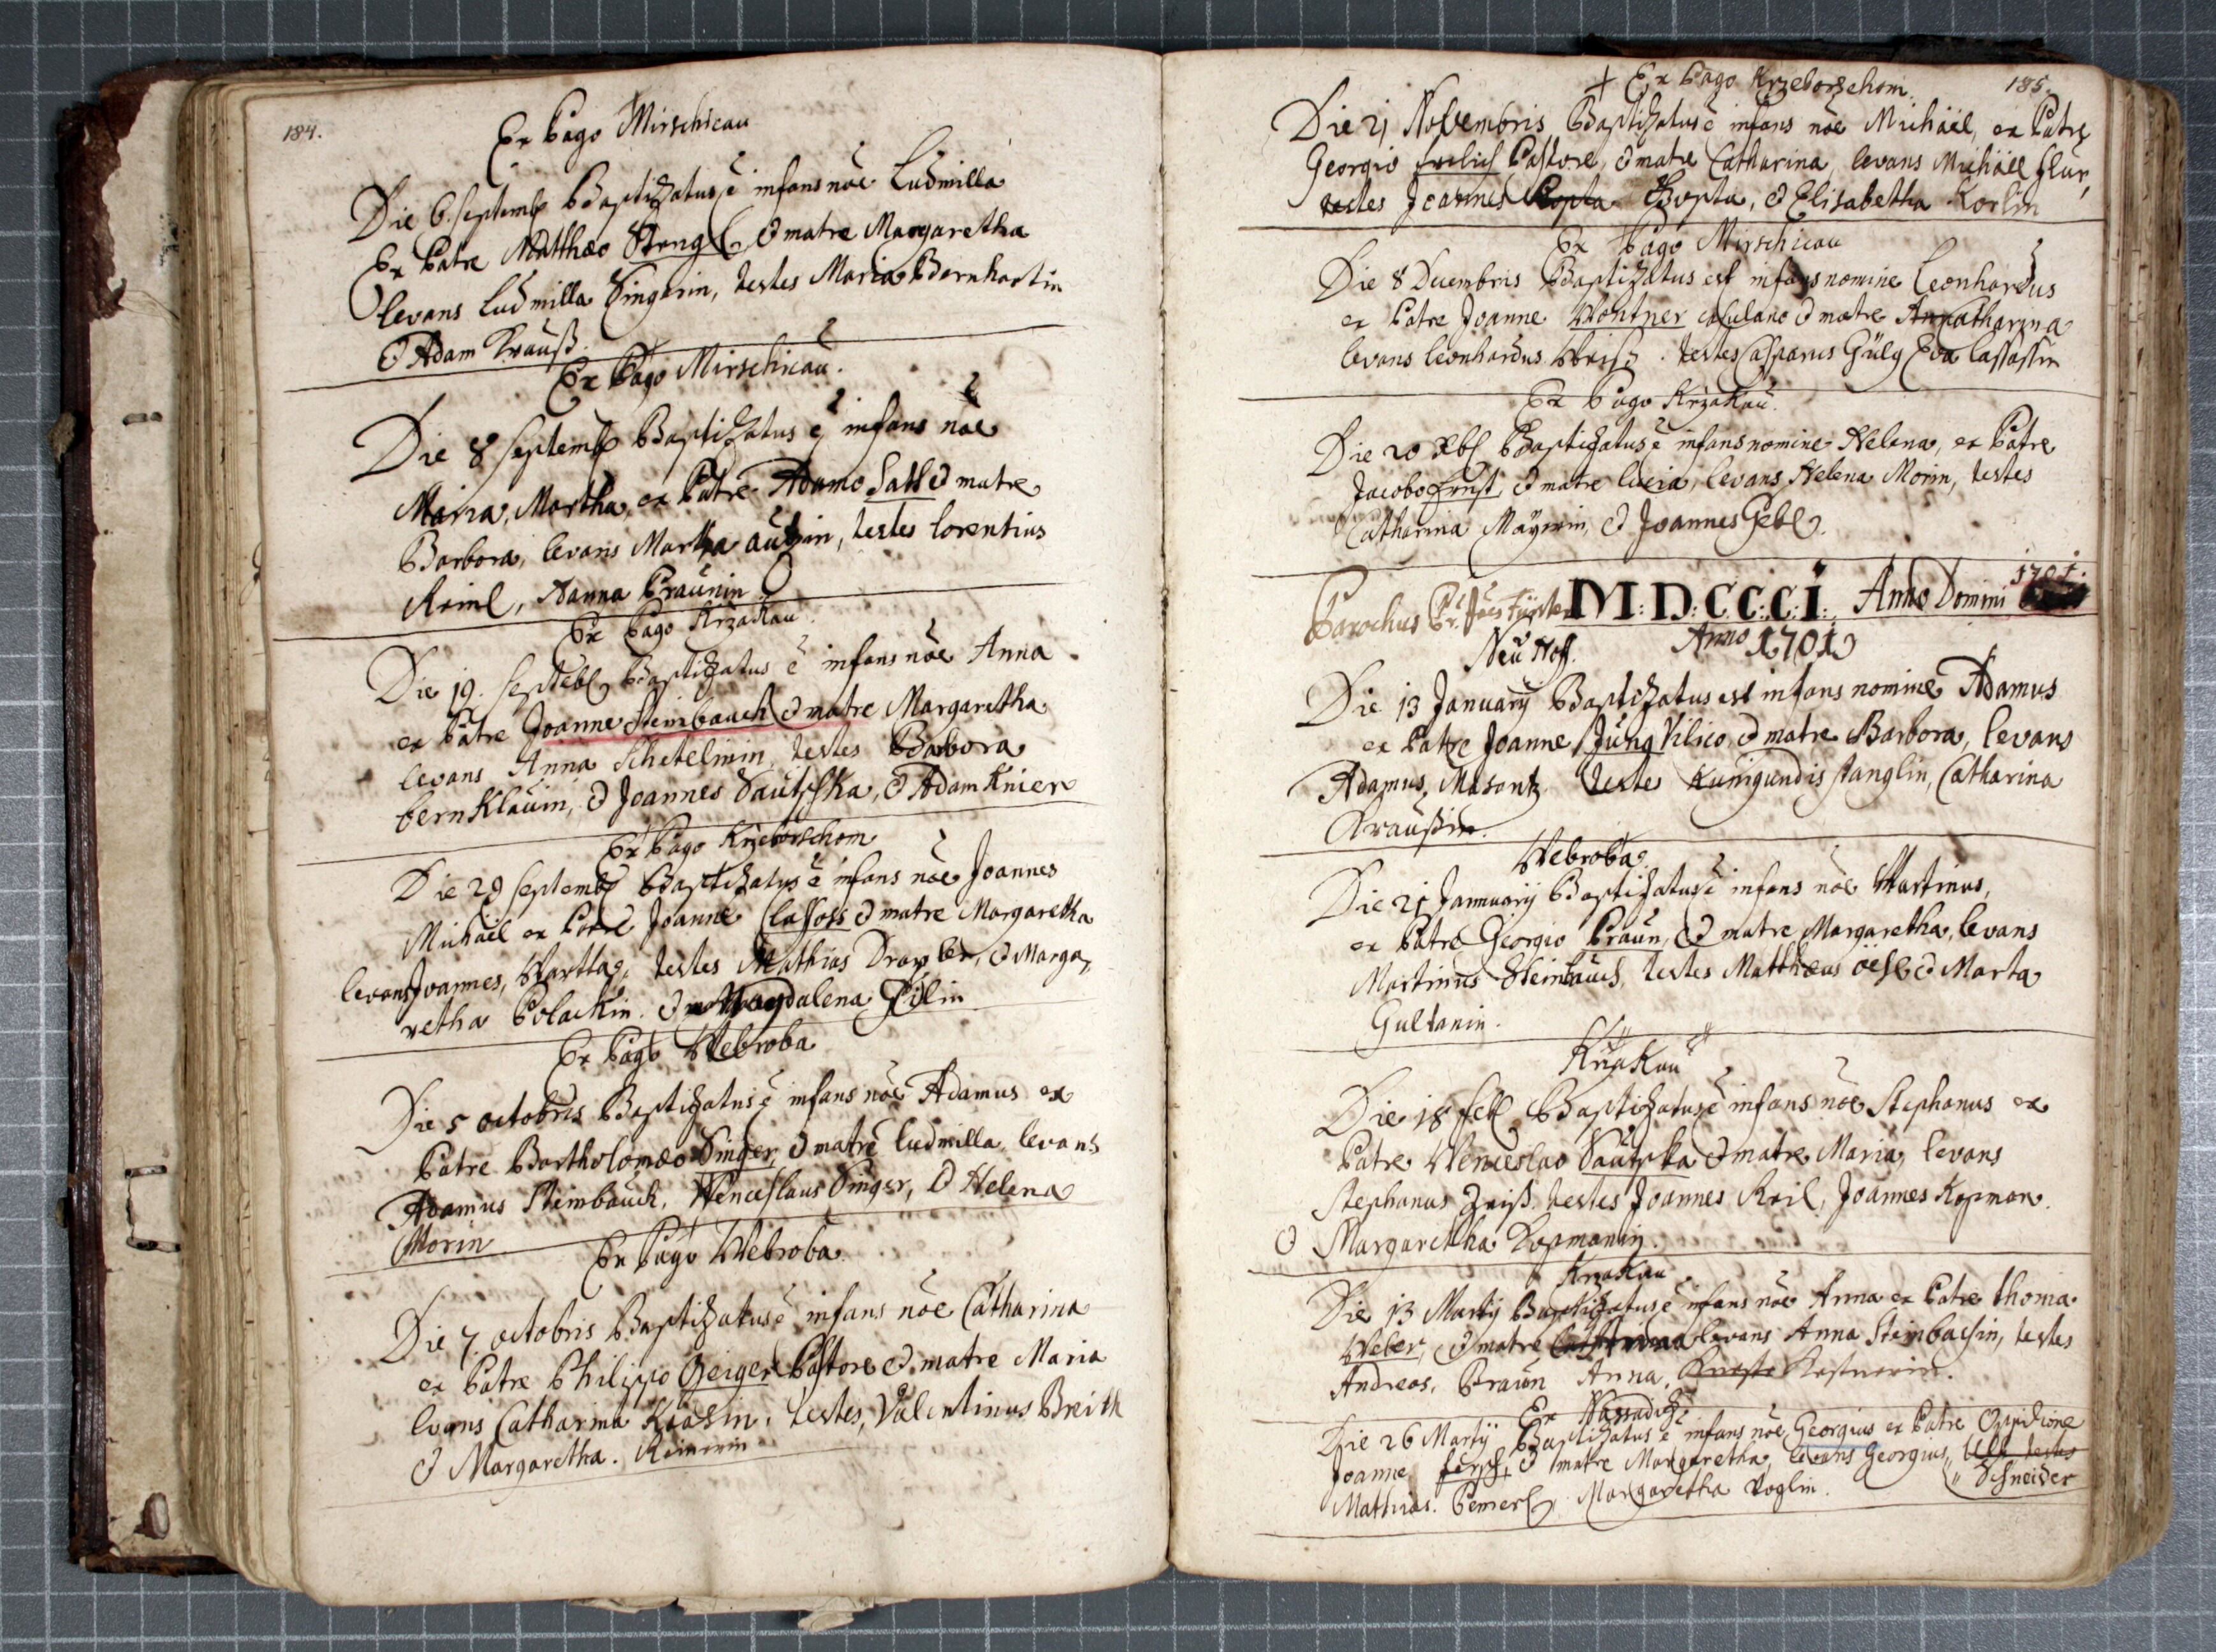 184.
Ex Pago Mirschicau
Die 6. Septemb Baptizatus ē infans nōe Ludmilla
Ex Patre Matthæo Stengl, & matre Margaretha
levans Ludmilla Singerin, testes Maria Bernhartin
& Adam Krauß.
Ex Pago Mirschicau.
Die 8 Septemb Baptizatus ē infans nōe
Maria, Martha, ex Patre Adamo & matre
Barbora, levans Martha, testes Lorentius
Reiml, Anna Praunin
Ex Pago Krzakau.
Die 19. Septebl Baptizatus ē infans nōe Anna
ex Patre Joanne Steinbauch & matre Margaretha
levans Anna Schetelmin, testes Barbora
bernklauin, & Joannes Sautzka, & Adam Knier
Ex Pago Krzeborschom
Die 29 Septemb Baptizatus ē infans nōe Joannes
Michaël ex Patre Joanne Classoss & matre Margaretha
levans Joannes, Wartta, testes Mathias Draxler, & Marga,
retha Polackin. & Magdalena Pilin
Ex Pago Webroba
Die 5 octobris Baptizatus ē infans nōe Adamus ex
Patre Bartholomæo Singer, & matre Ludmilla levans
Adamus Steinbauch, Wenceslaus Singer, & Helena
Morin
Ex Pago Webroba.
Die 7 octobris Baptizatus ē infans nōe Catharina
ex Patre Philippo Geiger Pastore & matre Maria
levans Catharina, testes, Valentinus Breith
& Margaretha. Reimerin
+ Ex Pago Krzeborschom. 185.
Die 21 Novembris Baptizatus ē infans nōe Michaël, ex Patre
Georgio Pastore, & matre Catharina, levans Michäel flur,
testes Joannes Kopta Kopta, & Elisabetha Korlin
Ex Pago Mirschicau
Die 8 Decembris Baptizatus est infans nomine Leonhardus
ex Patre Joanne Wontner casulano & matre Annatharina
levans Leonhardus Weis. testes Casparus Gülg Eva Lassassin
Ex Pago Krzakau.
Die 20 Xbl Baptizatus ē infans nomine Helena, ex Patre
Jacobo Ernst, & matre Lucia, levans Helena Morin, testes
Catharina Maÿerin, & Joannes Gebl.
Parochus M:D:C:C:C:I: Anno Domini 1701.
Neu Hoff. Anno 1701
Die 13 Januarij Baptizatus est infans nomine Adamus
ex Patre Joanne Jung Vilico, & matre Barbora, levans
Adamus, Masantz. teste Kunigundis stanglin, Catharina
Kraußin.
Webroba.
Die 21 Jannuarij Baptizatus ē infans nōe Martinus,
ex Patre Georgio Praun, & matre Margaretha, levans
Martinus Steinbauch, testes Matthæus & Marta
Gultanin.
Krzakau
Die 18 febl Baptizatus ē infans nōe Stephanus ex
Patre Wenceslao Sautzka & matre Maria, levans
Stephanus Zeiß. testes Joannes Reil, Joannes Kopman.
& Margaretha Kopmanin.
Krzakau
Die 13 Martij Baptizatus ē infans nōe Anna ex Patre thoma
Weber, & matre levans Anna Steinbachin, testes
Andreas, Praun Anna, Kastnerin.
Ex Nassadiz
Die 26 Martij Baptizatus ē infans nōe Georgius ex Patre Oppidione
Joanne, & matre Margaretha, levans Georgius, testes
Mathias. Pemerl, Margaretha Voglin. „ Schneider